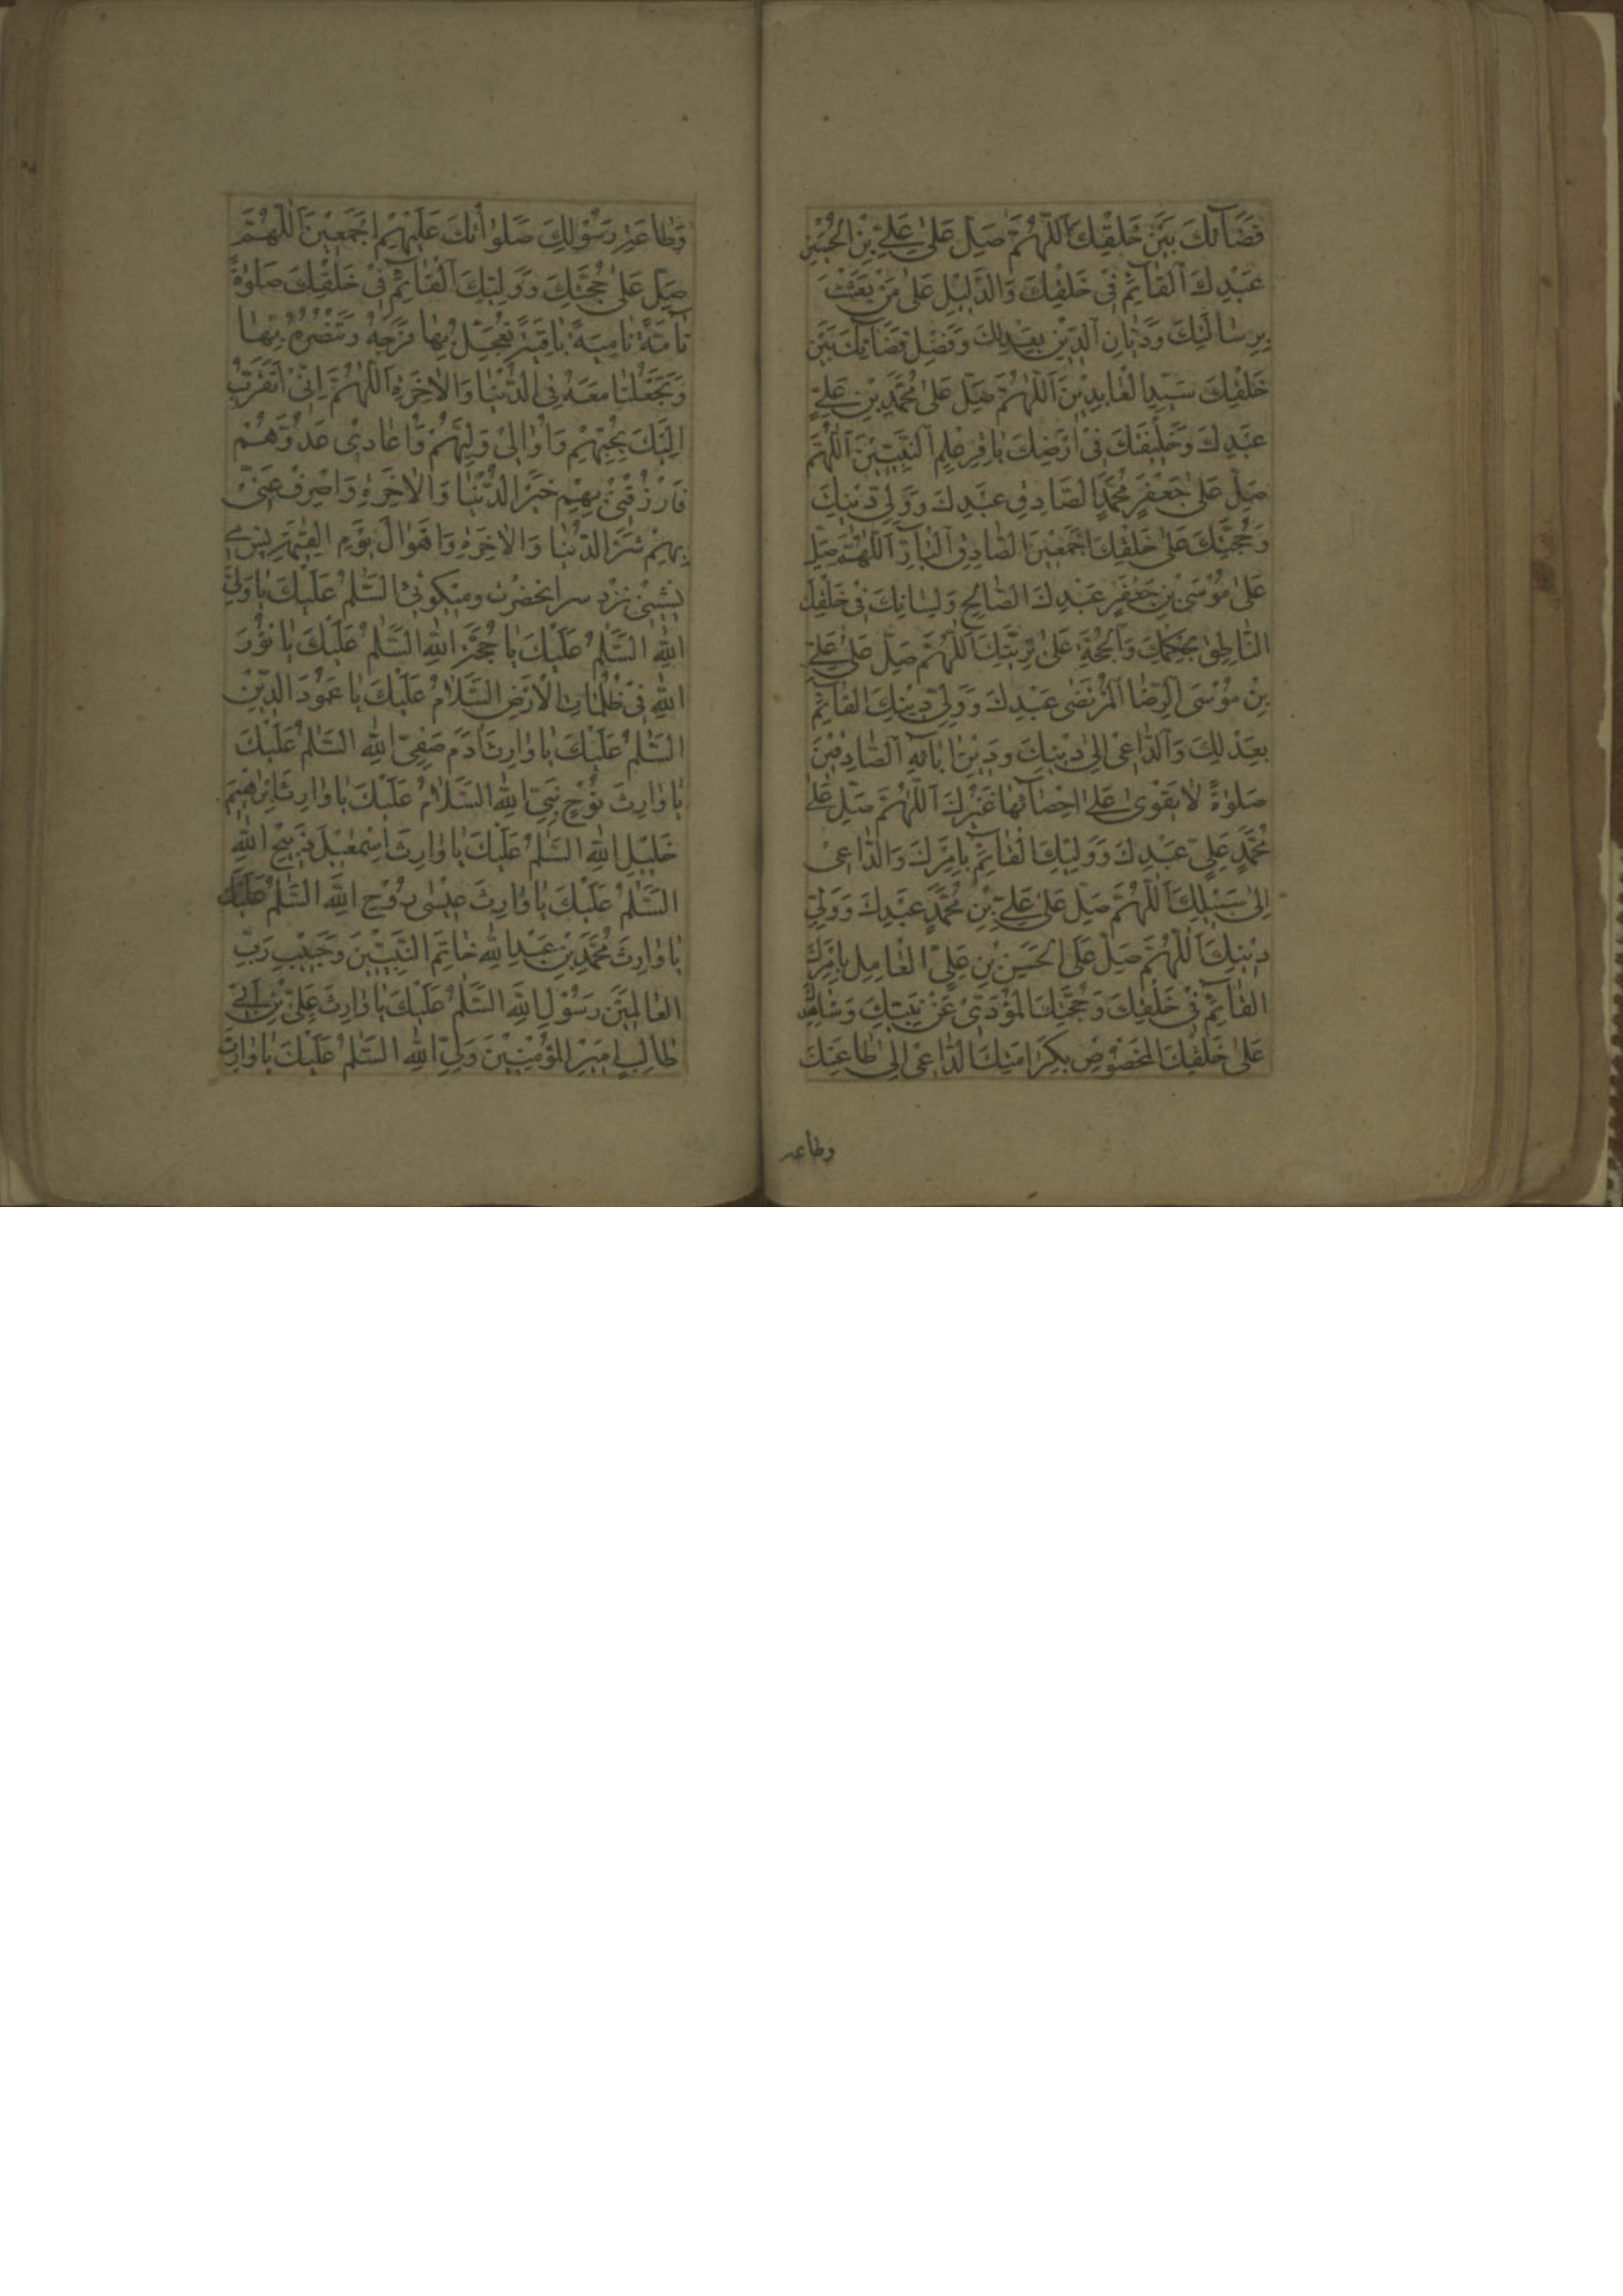 قَضَآئِكَ بَيْنَ خَلْقِكَ اَللّٰهُمَّ صَلِّ عَلٰى عَلِيِّ بْنِ الْحُسَيْنِ
عَبْدِكَ اَلْقٰآئِمِ فِىْ خَلْقِكَ وَالدَّلِيْلِ عَلٰى مَنْ بَعَثْتَ
بِرِسٰالَتِكَ وَدَيّٰانِ الدِّيْنِ بِعَدْلِكَ وَفَصْلِ قَضَآئِكَ بَيْنَ
خَلْقِكَ سَيِّدِ الْعٰابِدِيْنَ اَللّٰهُمَّ صَلِّ عَلٰى مُحَمَّدِ بْنِ عَلِيٍّ
عَبْدِكَ وَخَلِيْفَتِكَ فِىْ اَرْضِكَ بٰاقِرِ عِلْمِ النَّبِيّيْنَ اَللّٰهُمَّ
صَلِّ عَلٰى جَعْفَرِ مُحَمَّدٍ الصّٰادِقِ عَبْدِكَ وَوَلِيِّ دِيْنِكَ
وَحُجَّتِكَ عَلٰى خَلْقِكَ اَجْمَعِيْنَ الصّٰادِقِ الْبٰآرِّ اَللّٰهُمَّ صَلِّ
عَلٰى مُوْسَى بْنِ جَعْفَرٍ عَبْدِكَ الصّٰالِحِ وَلِسٰانِكَ فِىْ خَلْقِكَ
النّٰاطِقِ بِحِكْمِكَ وَالْحُجَّةِ عَلٰى بَرِيَّتِكَ اَللّٰهُمَّ صَلِّ عَلٰى عَلِيِّ
بْنِ مُوْسَى الرِّضٰا الْمُرْتَضٰى عَبْدِكَ وَوَلِيِّ دِيْنِكَ الْقٰآئِمِ
بِعَدْلِكَ وَالدّٰاعِىْ اِلىٰ دِيْنِكَ وَدِيْنِ اٰبٰائِهِ الصّٰادِقِيْنَ
صَلوٰةً لاٰ يَقْوىٰ عَلٰى اِحْصٰآئِهٰا غَيْرُكَ اَللّٰهُمَّ صَلِّ عَلٰى
مُحَمَّدِ عَلِيٍّ عَبْدِكَ وَوَلِيِّكَ الْقٰآئِمِ بِاَمْرِكَ وَالدّٰاعِىْ
اِلىٰ سَبِيْلِكَ اَللّٰهُمَّ صَلِّ عَلٰى عَلِيِّ بْنِ مُحَمَّدٍ عَبْدِكَ وَوَلِيِّ
دِيْنِكَ اَللّٰهُمَّ صَلِّ عَلَى الْحَسَنِ بْنِ عَلِيٍّ الْعٰامِلِ بِاَمْرِكَ
الْقٰآئِمِ فِىْ خَلْقِكَ وَحُجَّتِكَ الْمُؤَدّىْ عَنْ نَبِيِّكَ وَشٰاهِدِكَ
عَلٰى خَلْقِكَ الْمَخْصُوْصِ بِكَرٰامَتِكَ الدّٰاعِىْ اِلىٰ طٰاعَتِكَ
وطاعه
وَطٰاعَةِ رَسُوْلِكَ صَلَوٰاتُكَ عَلَيْهِمْ اَجْمَعِيْنَ اَللّٰهُمَّ
صَلِّ عَلٰى حُجَّتِكَ وَوَلِيِّكَ الْقٰآئِمِ فِىْ خَلْقِكَ صَلوٰةً
تٰآمَّةً نٰامِيَةً بٰاقِيَةً تُعَجِّلُ بِهٰا فَرَجَهُ وَتَنْصُرُهُ بِهٰا
وَتَجْعَلْنٰا مَعَهُ فِى الدُّنْيٰا وَالْاٰخِرَةِ اَللّٰهُمَّ اِنّىْ اَتَقَرَّبُ
اِلَيْكَ بِحُبِّهِمْ وَاُوٰالىْ وَلِيَّهُمْ وَاُعٰادىْ عَدُوَّهُمْ
فَارْزُقْنىْ بِهِمْ خَيْرَ الدُّنْيٰا وَالْاٰخِرَةِ وَاصْرِفْ عَنّىْ
بِهِمْ شَرَّ الدُّنْيٰا وَالْاٰخِرَةِ وَاَهْوٰالَ يَوْمِ الْقِيٰمَةِ پس مى
نشينى نزد سر انحضرت وميكوئى السَّلٰمُ عَلَيْكَ يٰا وَلِيَّ
اللهِ السَّلٰمُ عَلَيْكَ يٰا حُجَّةَ اللهِ السَّلٰمُ عَلَيْكَ يٰا نُوْرَ
اللهِ فِىْ ظُلُمٰاتِ الْاَرْضِ السَّلٰامُ عَلَيْكَ يٰا عَمُوْدَ الدِّيْنِ
السَّلٰمُ عَلَيْكَ يٰا وٰارِثَ اٰدَمَ صَفِىِّ اللهِ السَّلٰمُ عَلَيْكَ
يٰا وٰارِثَ نُوْحٍ نَبِىِّ اللهِ السَّلٰامُ عَلَيْكَ يٰا وٰارِثَ اِبْرٰهِيْمَ
خَلِيْلِ اللهِ السَّلٰمُ عَلَيْكَ يٰا وٰارِثَ اِسْمٰعِيْلَ ذَبِيْحِ اللهِ
السَّلٰمُ عَلَيْكَ يٰا وٰارِثَ عِيْسٰى رُوْحِ اللهِ السَّلٰمُ عَلَيْكَ
يٰا وٰارِثَ مُحَمَّدِ بْنِ عَبْدِ اللهِ خٰاتِمِ النَّبِيّيْنَ وَحَبِيْبِ رَبِّ
الْعٰالَمِيْنَ رَسُوْلِ اللهِ السَّلٰمُ عَلَيْكَ يٰا وٰارِثَ عَلِىِّ بْنِ اَبىْ
طٰالِبٍ اَمِيْرِ الْمُؤْمِنِيْنَ وَلِيِّ اللهِ السَّلٰمُ عَلَيْكَ يٰا وٰارِثَ